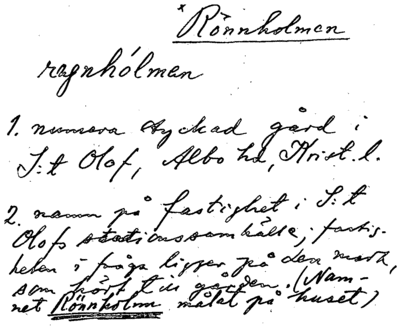 × Rönnholmen
rɤgnhólmen
1. numera styckad gård i
S:t Olof, Albo hd, Krist. l.
2. namn på fastighet i S:t
Olofs stationssamhälle; fastig-
heten i fråga ligger på den mark,
som hört till gården. (Nam-
net Rönnholm målat på huset)